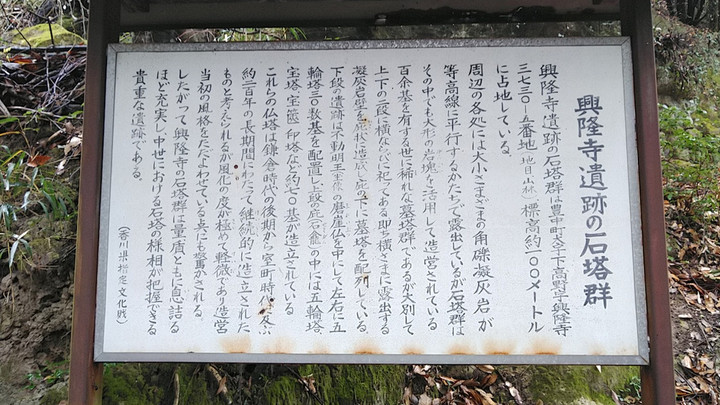 興隆寺遺跡の石塔群
興隆寺遺跡の石塔群は豊中町大字下高野字興隆寺
三七三〇ノ五番地(地目山林)標高約一〇〇メートル
に占地している。
周辺の各処には大小さまざまの角礫凝灰岩が
等高線に平行するかたちで露出しているが石塔群は
その中でも大形の岩塊を活用して造営されている
百余基を有する世に稀れな墓塔群であるが大別して
上下の二段に横ならびに祀ってある即ち横さまに露出する
凝灰岩壁を庇状に造成し庇下に墓塔を配列している。
下段の遺跡は不動明王の磨崖仏を中心して左右に五
輪塔三〇数基を配置し上段の庇(石龕)の中には五輪塔、
宝塔宝篋印塔など約七〇基が造立されている
これらの仏塔は鎌倉時代の後期から室町時代に及ぶ
約二百年の長期間にわたって継続的に造立された
ものと考えられるが風化の度が極めて軽微であり造営
当初の風格をただよわせている共にも驚かされる。
したがって興隆寺の石塔群は量質ともに息詰る
ほど充実し中世における石塔の様相が把握できる
貴重な遺跡である。
(香川県指定文化財)